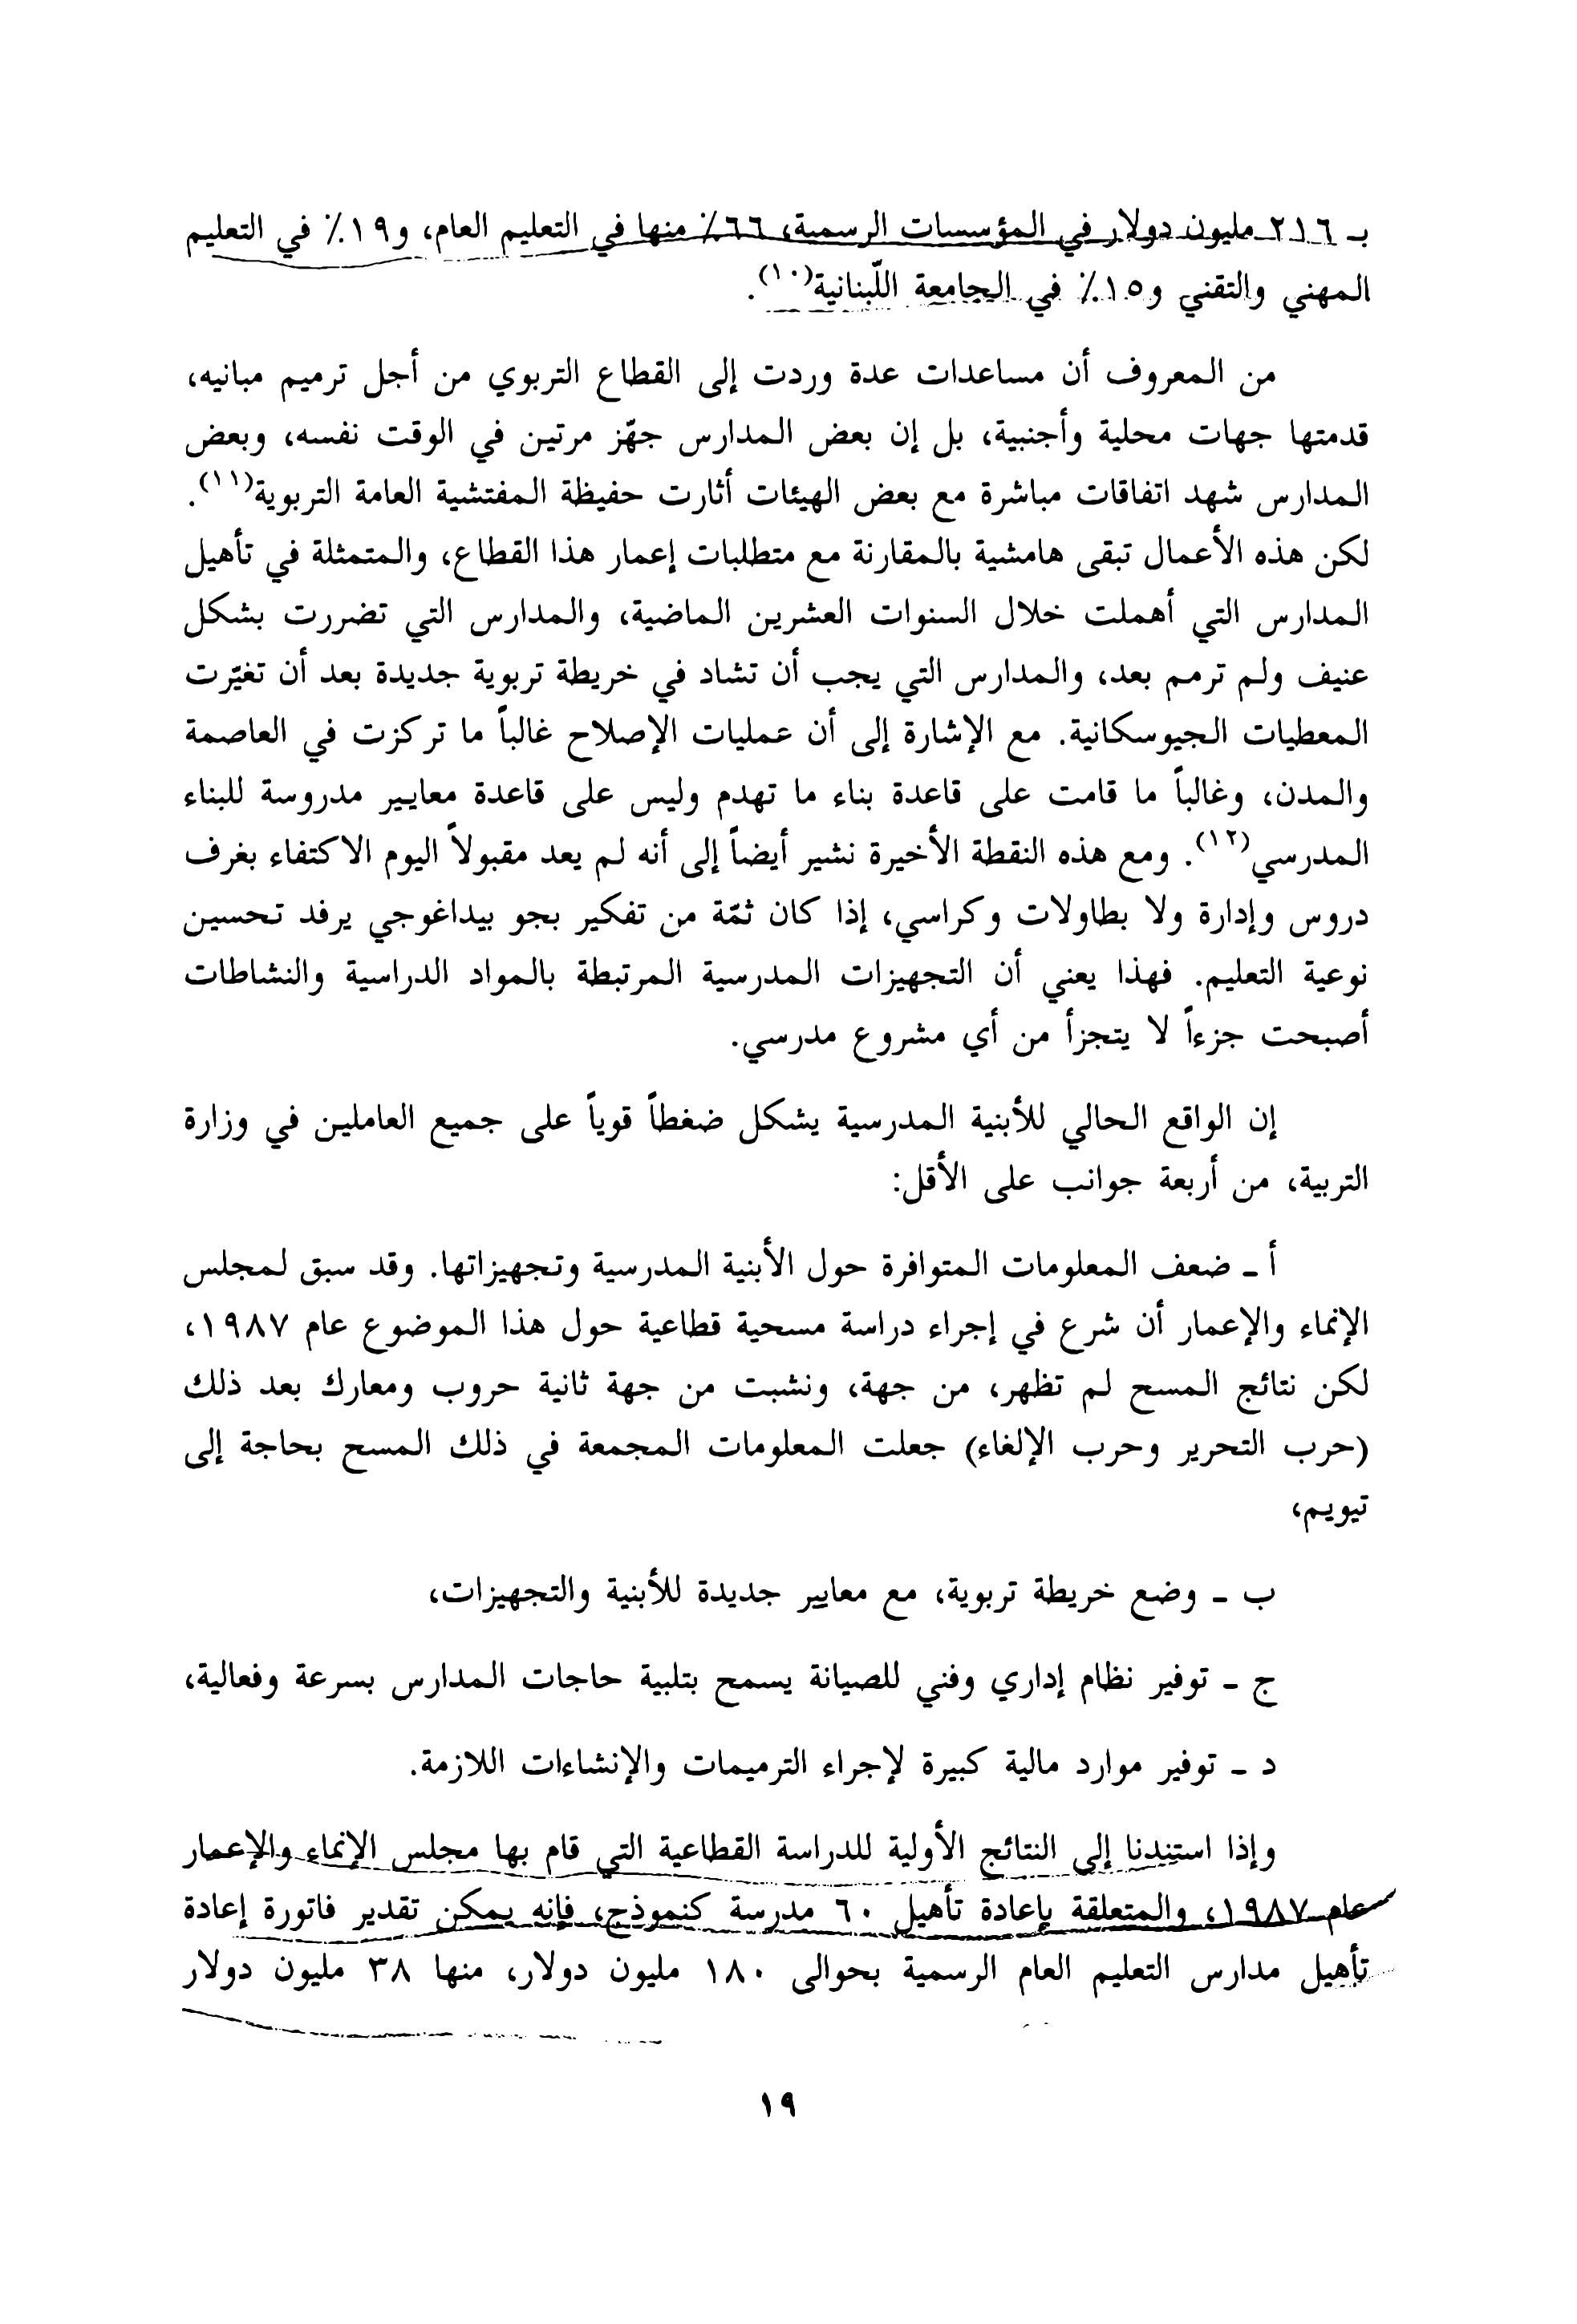 بـ ٢١٦ مليون دولار في المؤسسات الرسمية، ٦٦٪ منها في التعليم العام، و١٩٪ في التعليم
المهني والتقني و١٥٪ في الجامعة اللّبنانية(١٠).
من المعروف أن مساعدات عدة وردت إلى القطاع التربوي من أجل ترميم مبانيه،
قدمتها جهات محلية وأجنبية، بل إن بعض المدارس جهّز مرتين في الوقت نفسه، وبعض
المدارس شهد اتفاقات مباشرة مع بعض الهيئات أثارت حفيظة المفتشية العامة التربوية(١١).
لكن هذه الأعمال تبقى هامشية بالمقارنة مع متطلبات إعمار هذا القطاع، والمتمثلة في تأهيل
المدارس التي أهملت خلال السنوات العشرين الماضية، والمدارس التي تضررت بشكل
عنيف ولم ترمم بعد، والمدارس التي يجب أن تشاد في خريطة تربوية جديدة بعد أن تغيّرت
المعطيات الجيوسكانية. مع الإشارة إلى أن عمليات الإصلاح غالباً ما تركزت في العاصمة
والمدن، وغالباً ما قامت على قاعدة بناء ما تهدم وليس على قاعدة معايير مدروسة للبناء
المدرسي(١٢). ومع هذه النقطة الأخيرة نشير أيضاً إلى أنه لم يعد مقبولاً اليوم الاكتفاء بغرف
دروس وإدارة ولا بطاولات وكراسي، إذا كان ثمّة من تفكير بجو بيداغوجي يرفد تحسين
نوعية التعليم. فهذا يعني أن التجهيزات المدرسية المرتبطة بالمواد الدراسية والنشاطات
أصبحت جزءاً لا يتجزأ من أي مشروع مدرسي.
إن الواقع الحالي للأبنية المدرسية يشكل ضغطاً قوياً على جميع العاملين في وزارة
التربية، من أربعة جوانب على الأقل:
أ ـ ضعف المعلومات المتوافرة حول الأبنية المدرسية وتجهيزاتها. وقد سبق لمجلس
الإنماء والإعمار أن شرع في إجراء دراسة مسحية قطاعية حول هذا الموضوع عام ١٩٨٧،
لكن نتائج المسح لم تظهر، من جهة، ونشبت من جهة ثانية حروب ومعارك بعد ذلك
(حرب التحرير وحرب الإلغاء) جعلت المعلومات المجمعة في ذلك المسح بحاجة إلى
تيويم،
ب ـ وضع خريطة تربوية، مع معايير جديدة للأبنية والتجهيزات،
ج ـ توفير نظام إداري وفني للصيانة يسمح بتلبية حاجات المدارس بسرعة وفعالية،
د ـ توفير موارد مالية كبيرة لإجراء الترميمات والإنشاءات اللازمة.
وإذا استندنا إلى النتائج الأولية للدراسة القطاعية التي قام بها مجلس الإنماء والإعمار
عام ١٩٨٧، والمتعلقة بإعادة تأهيل ٦٠ مدرسة كنموذج، فإنه يمكن تقدير فاتورة إعادة
تأهيل مدارس التعليم العام الرسمية بحوالى ١٨٠ مليون دولار، منها ٣٨ مليون دولار
١٩